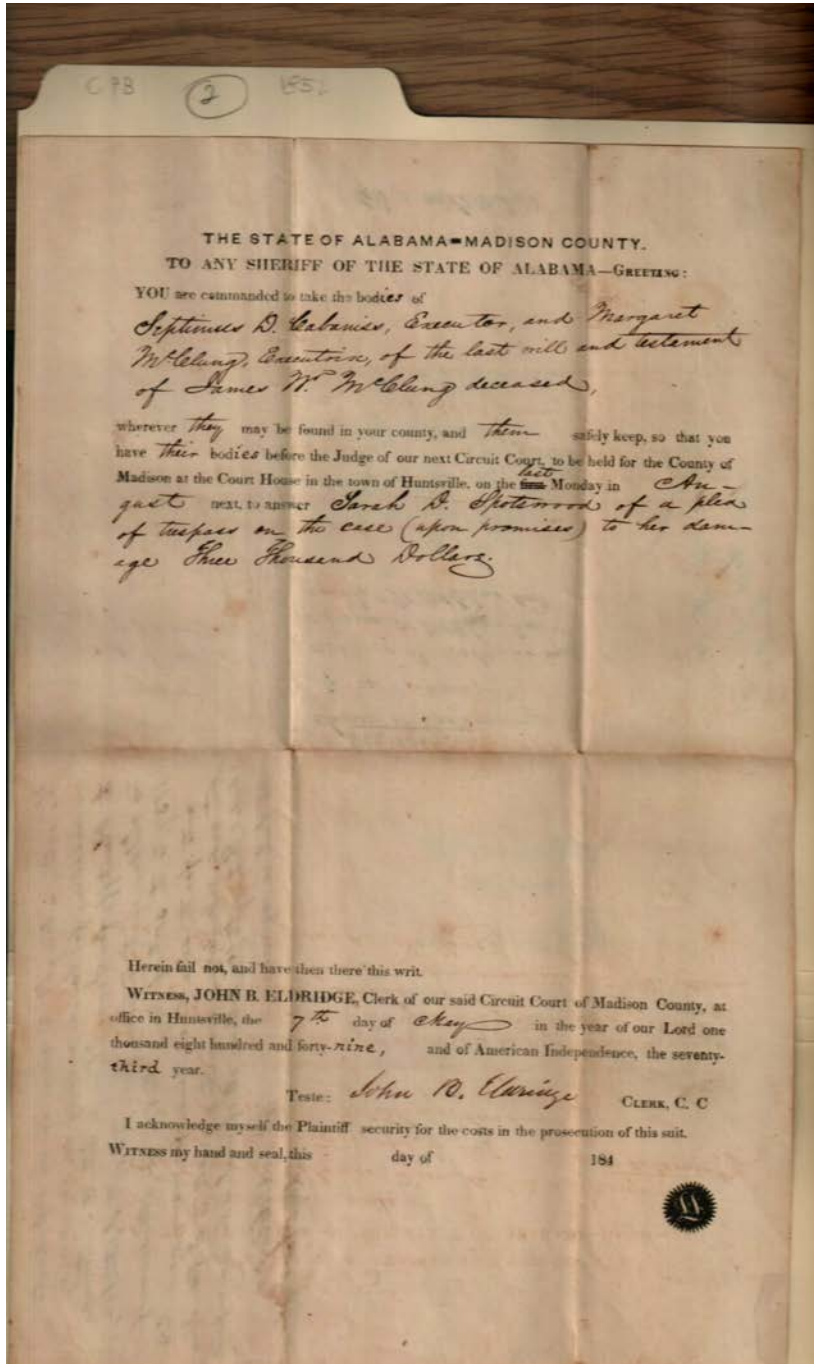 CPB 2 1852
THE STATE OF ALABAMA=MADISON COUNTY.
TO ANY SHERIFF OF THE STATE OF ALABAMA—GREETING:
YOU are commanded to take the bodies of
Septimus D. Cabaniss, Executor, and Margaret
McClung, Executrix, of the last will and testament
of James W. McClung deceased,
wherever they may be found in your county, and them safely keep, so that you
have their bodies before the Judge of our next Circuit Court, to be held for the County of
last
Madison at the Court House in the town of Huntsville, on the first Monday in Au-
gust next, to answer Sarah D. Spotswood of a plea
of trespass on the case (upon promises) to her dam-
age Three Thousand Dollars.
Herein fail not, and have then there this writ.
WITNESS, JOHN B. ELDRIDGE, Clerk of our said Circuit Court of Madison County, at
office in Huntsville, the 7th day of May in the year of our Lord one
thousand eight hundred and forty-nine, and of American Independence, the seventy-
third year.
Teste: John B. Eldridge CLERK, C. C
I acknowledge myself the Plaintiff security for the costs in the prosecution of this suit.
WITNESS my hand and seal, this day of 184